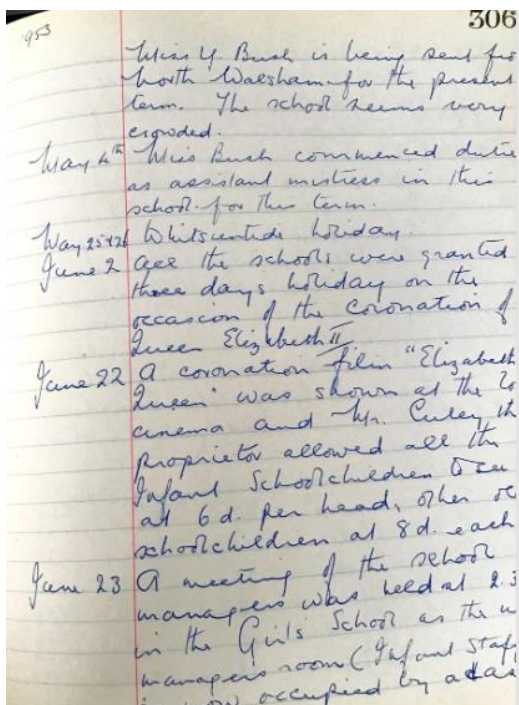 306
1953
Miss Y. Bush is being sent fro
North Walsham for the present
term. The school seems very
crowded.
May 4th Miss Bush commenced dutie
as assistant mistress in this
school for this term.
May 25 & 26 Whitsuntide holiday.
June 2 All the schools were granted
three days holiday on the
occasion of the coronation of
Queen Elizabeth II
June 22 A coronation film "Elizabeth
Queen" was shown at the
cinema and Mr. th
proprietor allowed all the
Infant Schoolchildren to see
at 6d. per head, other
schoolchildren at 8d. each
June 23 A meeting of the school
managers was held at 2.3
in the Girls School as the
managers room (Infant Staff
now occupied by a